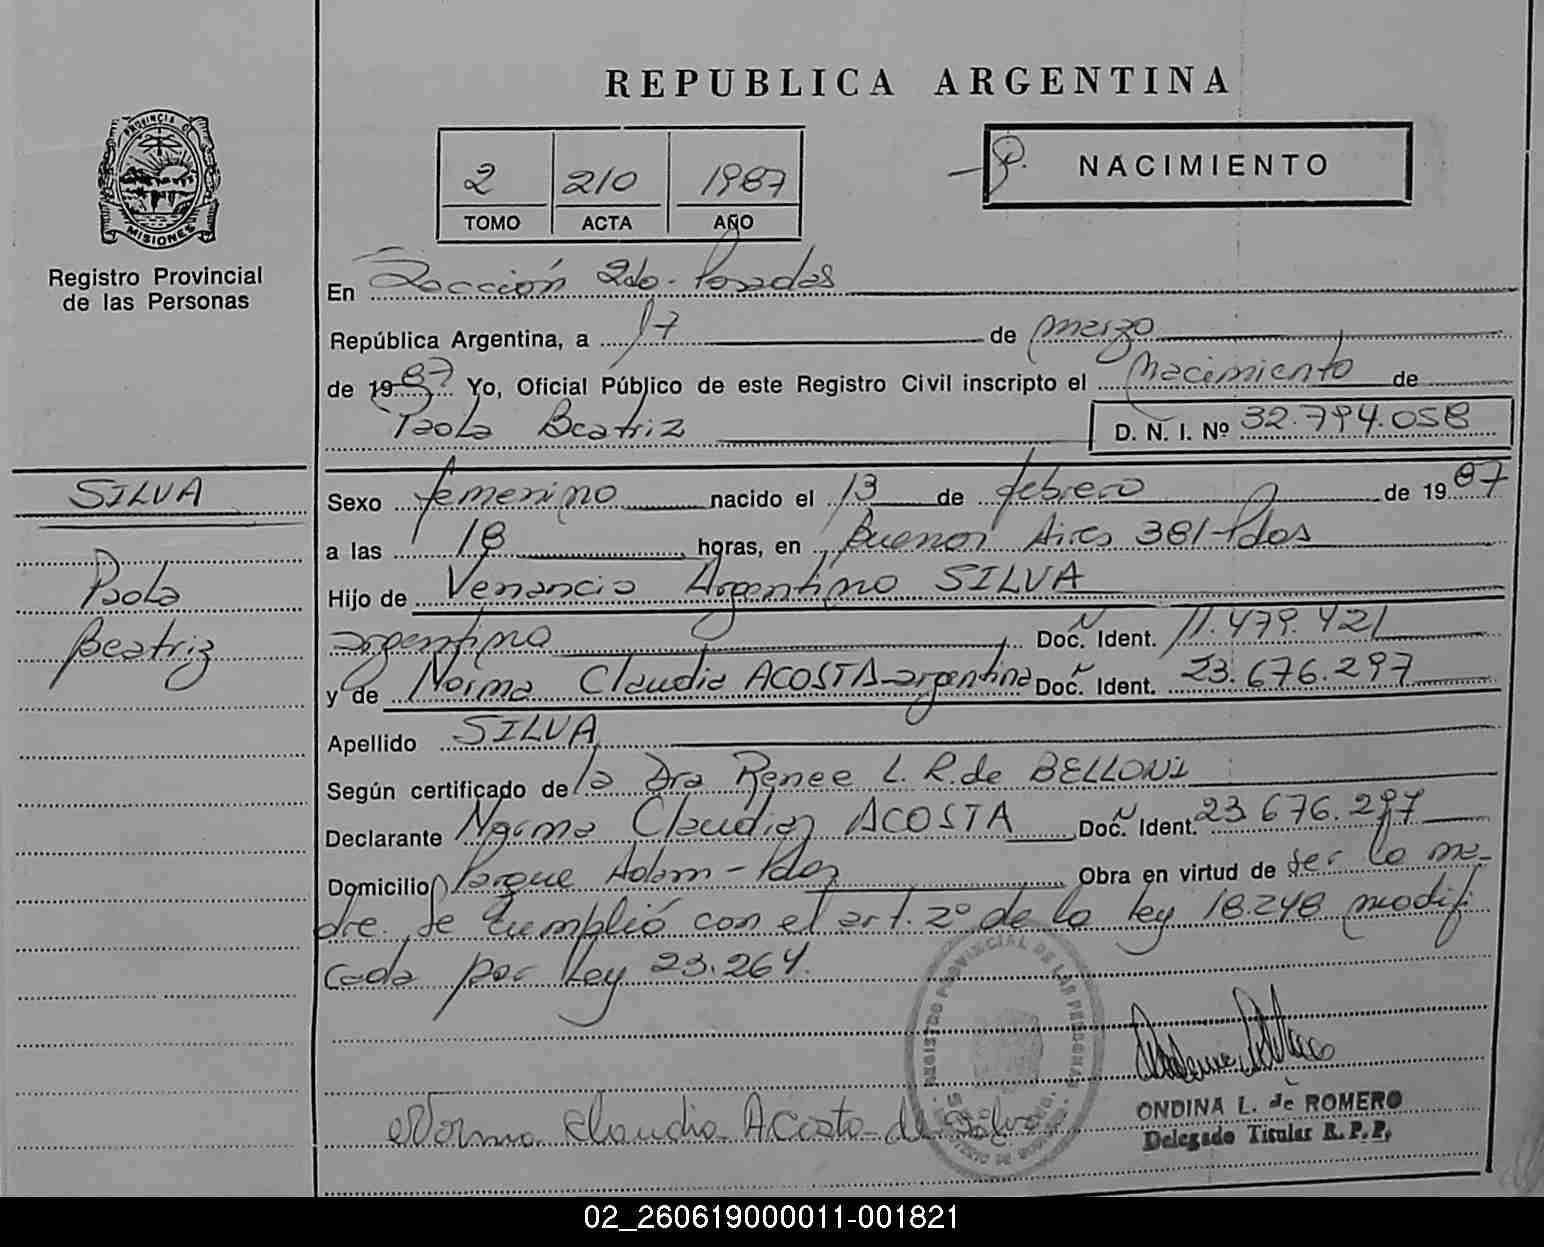 REPUBLICA ARGENTINA
PROVINCIA DE
MISIONES
Registro Provincial
de las Personas
2 210 1987
TOMO ACTA AÑO
NACIMIENTO
En Sección 2do. Posadas
República Argentina, a 17 de marzo
de 1987 Yo, Oficial Público de este Registro Civil inscripto el Nacimiento de
Paola Beatriz D. N. I. Nº 32.794.058
SILVA
Paola
Beatriz
Sexo femenino nacido el 13 de febrero de 1987
a las 18 horas, en Buenos Aires 381-Pdas
Hijo de Venancio Argentino SILVA
argentino Doc. Ident. Nº 11.479.421
y de Norma Claudia ACOSTA-argentina Doc. Ident. Nº 23.676.297
Apellido SILVA
Según certificado de la Dra Renee L. R. de BELLONI
Declarante Norma Claudia ACOSTA Doc. Ident. Nº 23.676.297
Domicilio Parque Adam - Pdas Obra en virtud de ser la ma-
dre. Se cumplió con el art. 2º de la ley 18.248 modifi
cada por Ley 23.264.
REGISTRO PROVINCIAL DE LAS PERSONAS
Norma Claudia Acosta de Silva
ONDINA L. de ROMERO
Delegado Titular R.P.P.
02_260619000011-001821